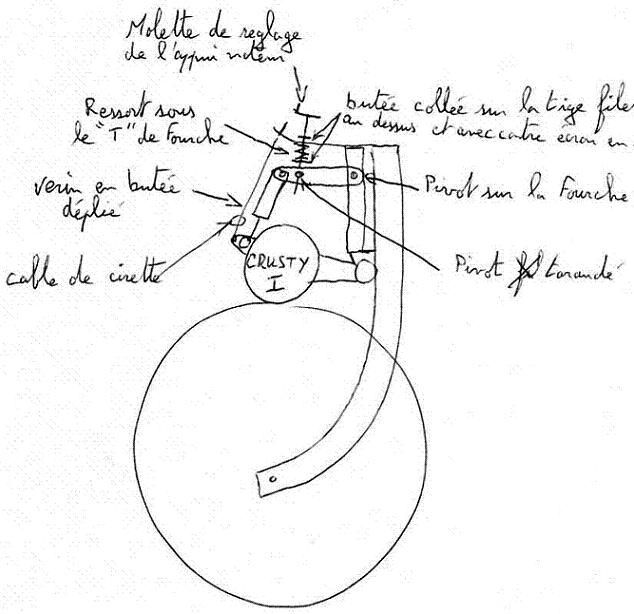 Molette de reglage
de l'appui moteur
Ressort sous
le "T" de Fourche
butée collée sur la tige file
au dessus et avec contre ecrou en
verin en butée
déplié
Pivot sur la Fourche
cable de cirette
CRUSTY
I
Pivot taraudé